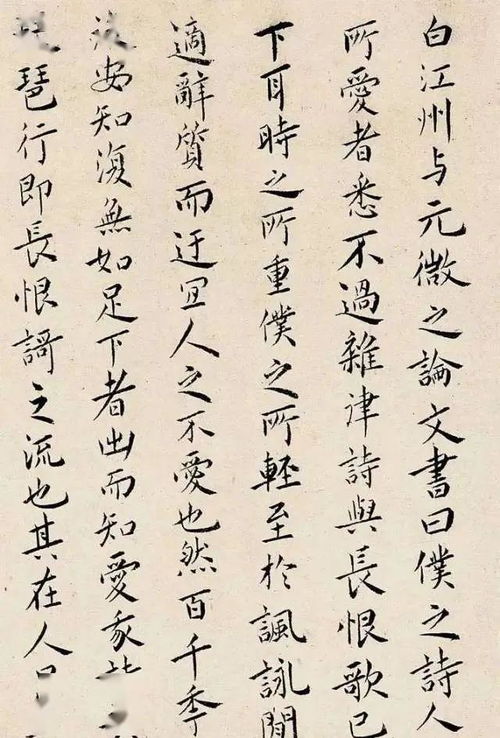 白江州与元微之論文書曰僕之詩人
所愛者悉不過雜律詩與長恨歌已
下耳時之所重僕之所輕至於諷詠閒
適辭質而迂宜人之不愛也然百千季
後安知復無如足下者出而知愛我
琶行即長恨謌之流也其在人口